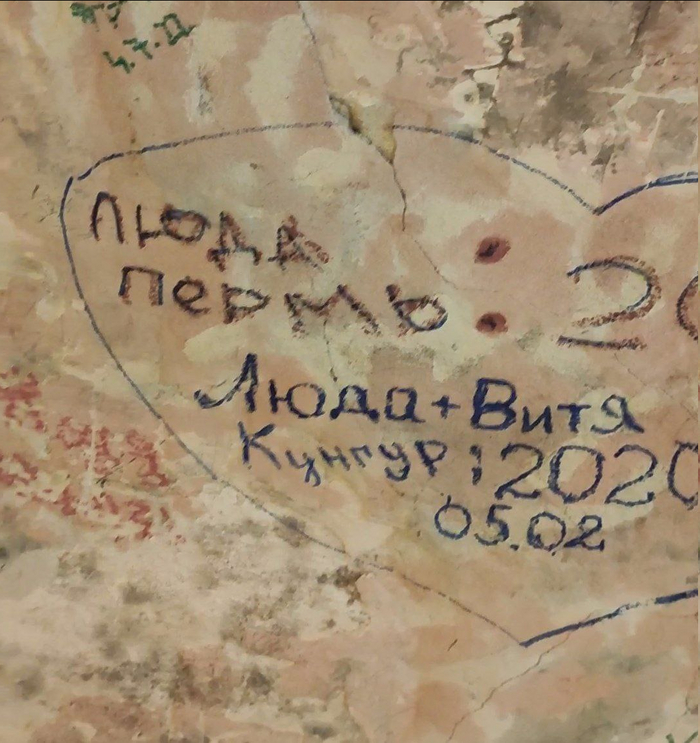 4.7.22
ЛЮДА
ПЕРМЬ : 20
Люда+Витя
Кунгур : 2020
05.02